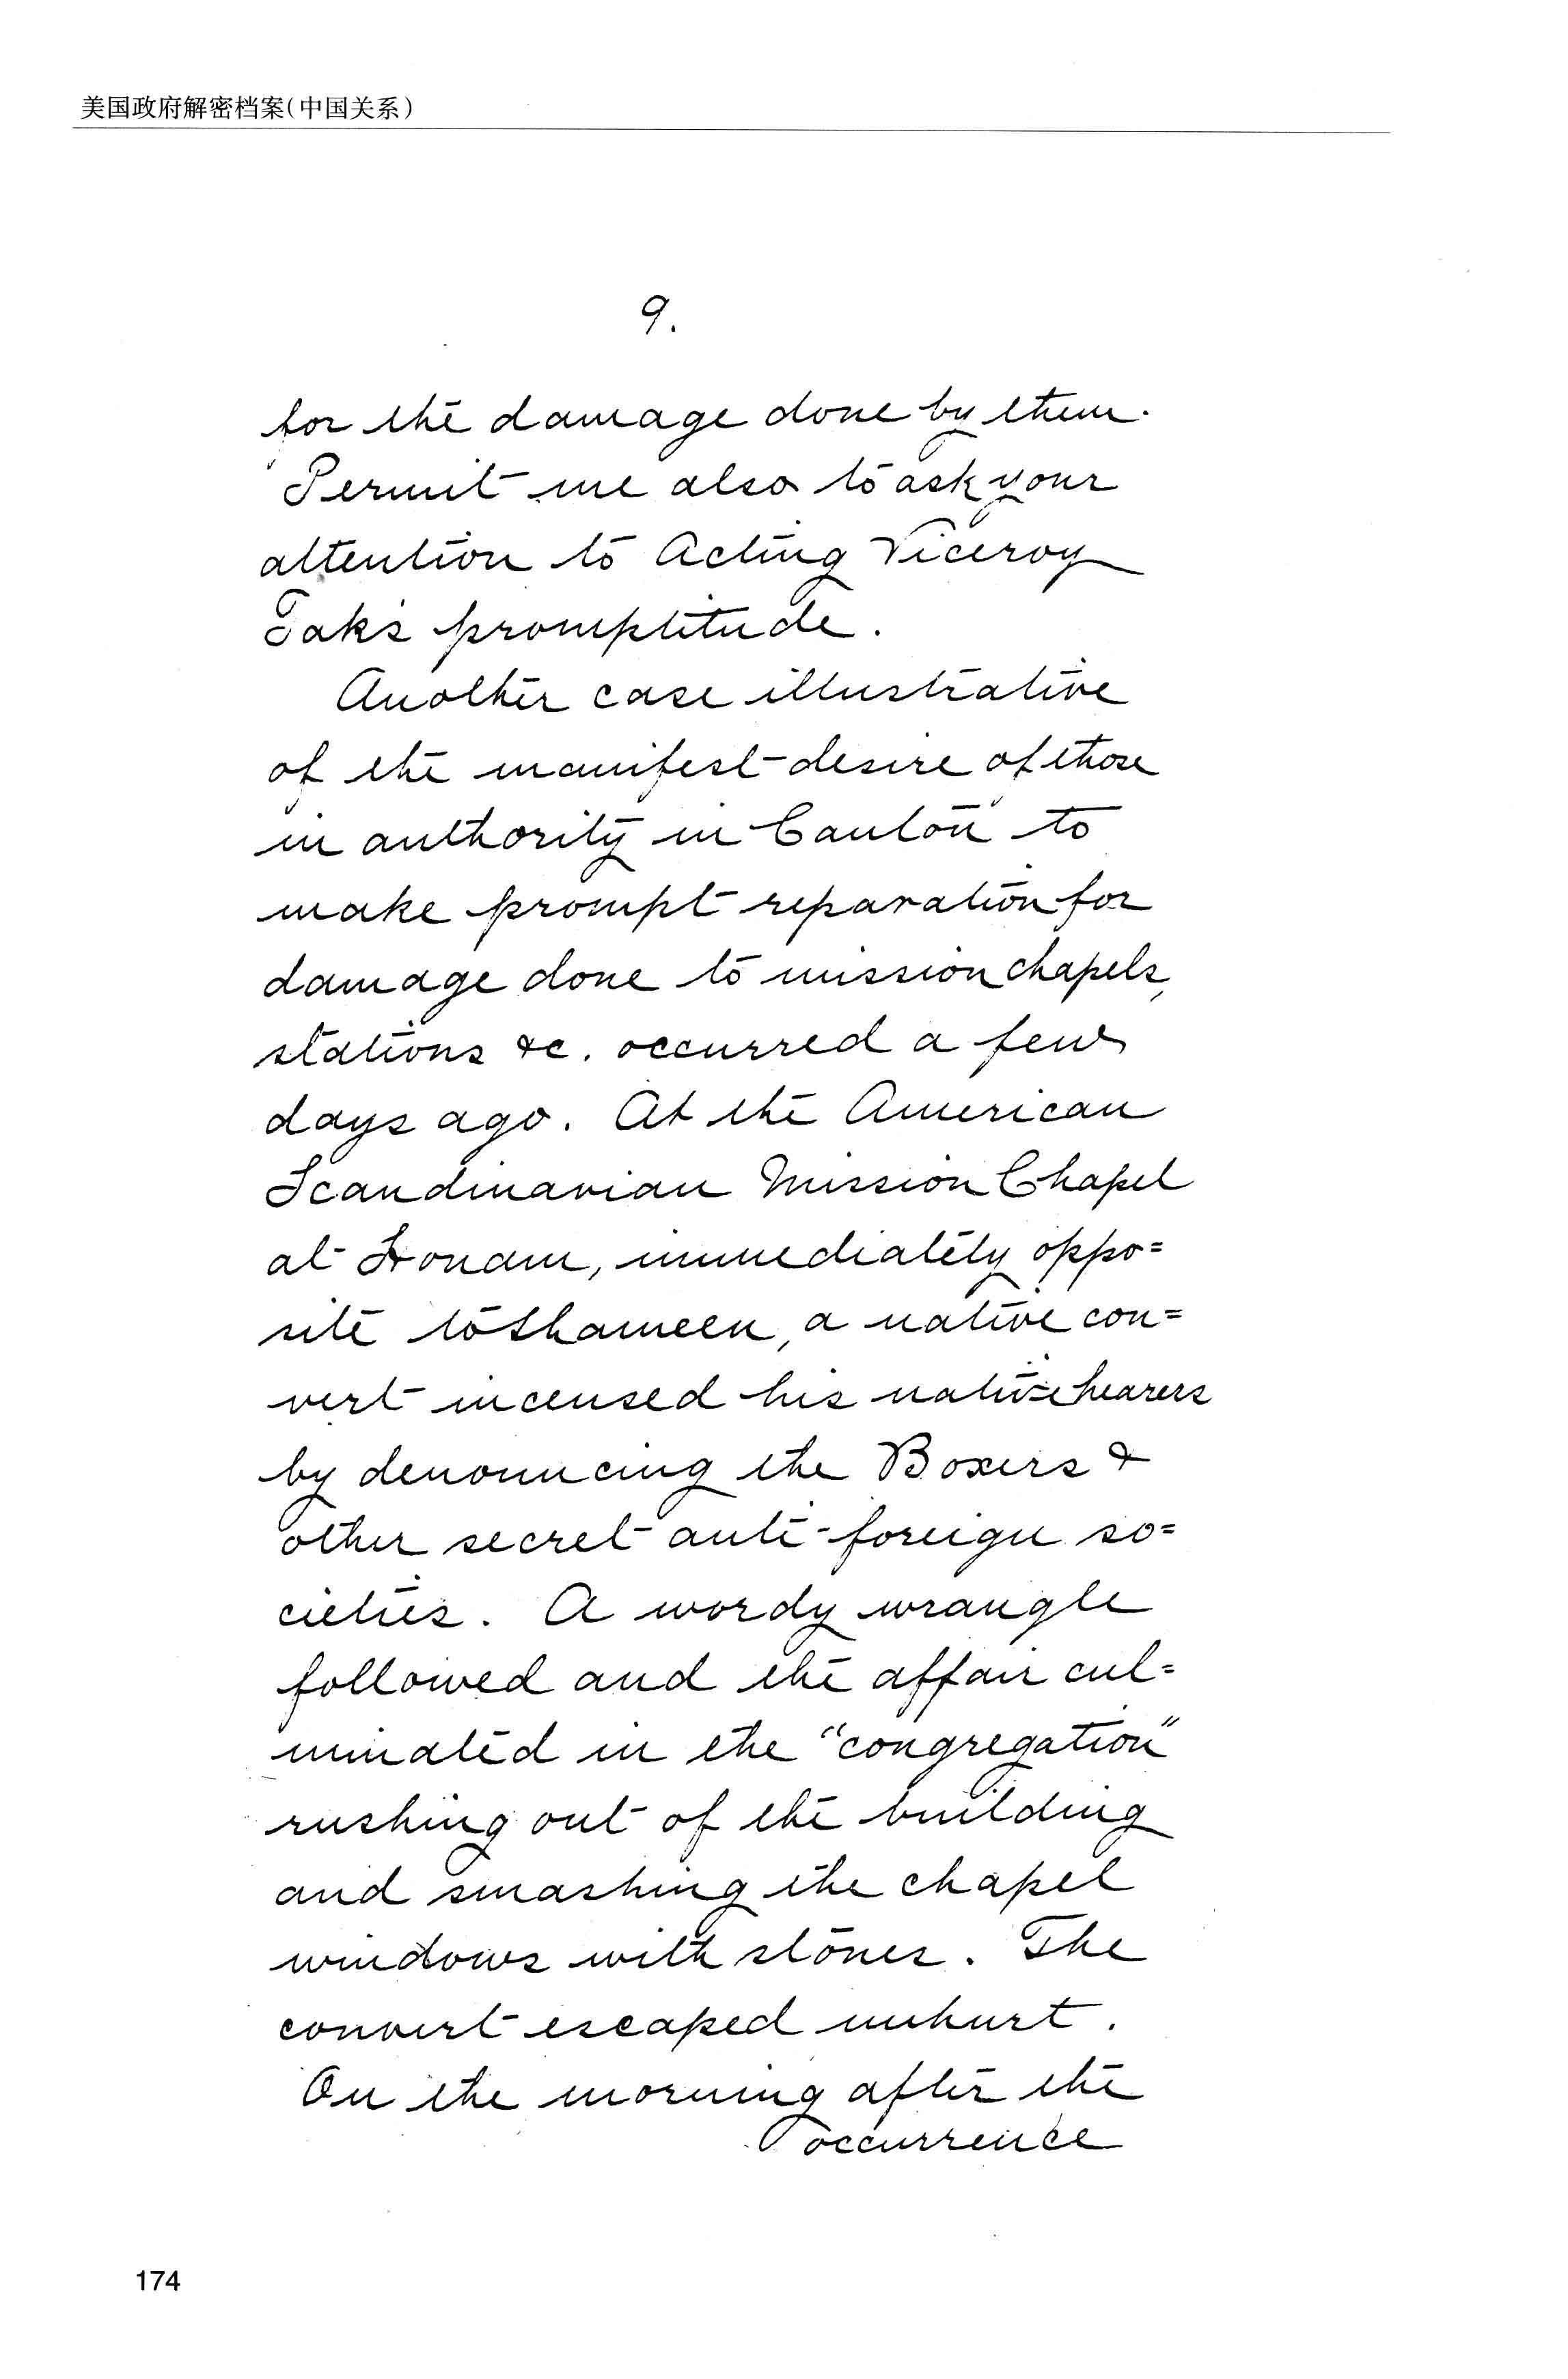 美国政府解密档案(中国关系)
9.
for the damage done by them.
Permit me also to ask your
attention to Acting Viceroy
Tak's promptitude.
Another case illustrative
of the manifest desire of those
in authority in Canton to
make prompt reparation for
damage done to mission chapels,
stations &c. occurred a few
days ago. At the American
Scandinavian Mission Chapel
at Honam, immediately oppo=
site to Shameen, a native con=
vert incensed his native hearers
by denouncing the Boxers &
other secret anti-foreign so=
cieties. A wordy wrangle
followed and the affair cul=
minated in the "congregation"
rushing out of the building
and smashing the chapel
windows with stones. The
convert escaped unhurt.
On the morning after the
occurrence
174